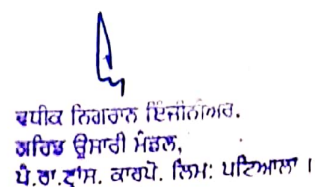 ਵਧੀਕ ਨਿਗਰਾਨ ਇੰਜੀਨੀਅਰ.
ਗਰਿਡ ਉਸਾਰੀ ਮੰਡਲ,
ਪੰ.ਰਾ.ਟ੍ਰਾਂਸ. ਕਾਰਪੋ. ਲਿਮ: ਪਟਿਆਲਾ ।